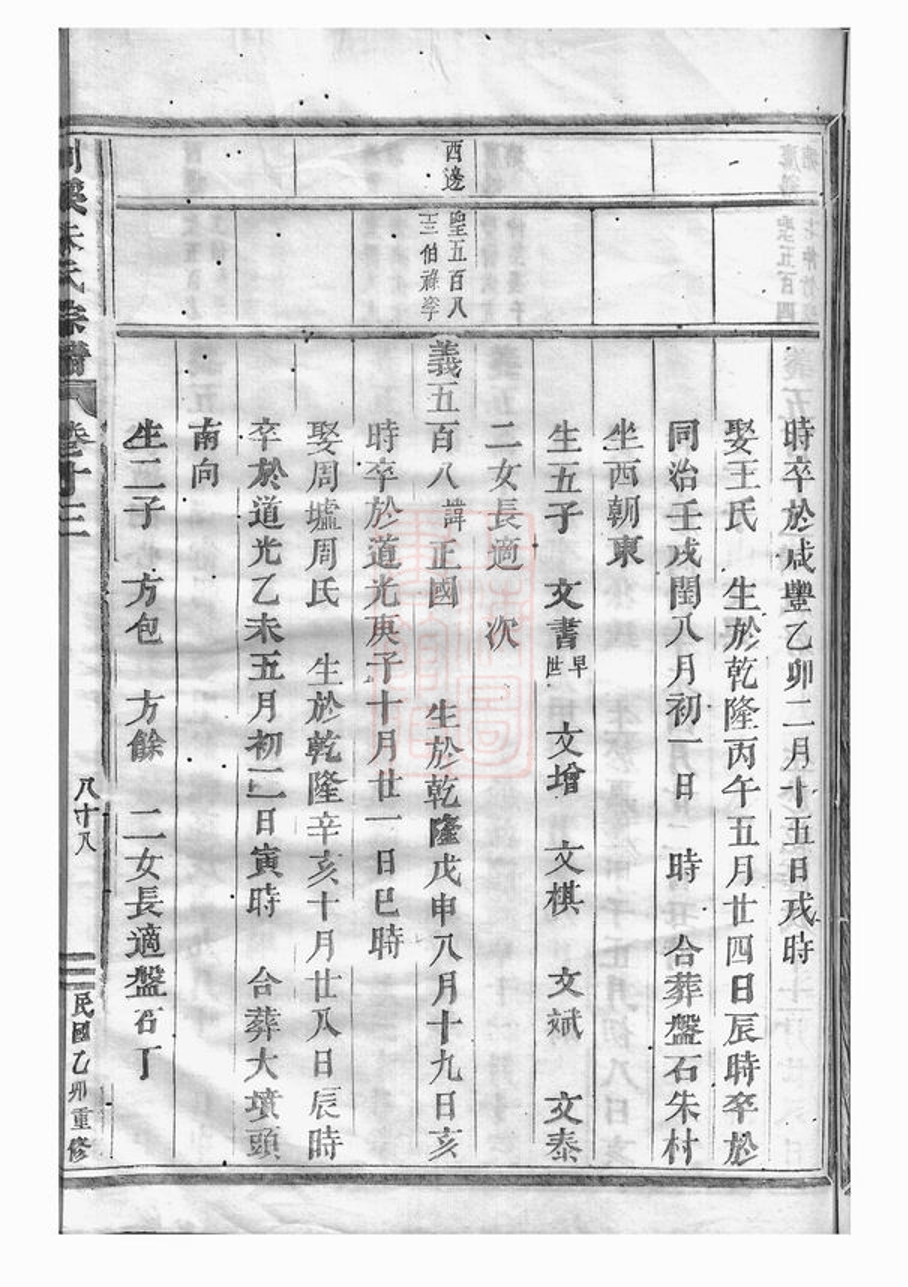 時卒於咸豐乙卯二月十五日戌時
娶王氏 生於乾隆丙午五月廿四日辰時卒於
同治壬戌閏八月初一日 時 合葬盤石朱村
坐西朝東
生五子 文書早世 文增 文棋 文斌 文泰
二女長適 次
西邊
聖五百八
三伯祿孚
義五百八諱正國 生於乾隆戊申八月十九日亥
時卒於道光庚子十月廿一日巳時
娶周墟周氏 生於乾隆辛亥十月廿八日辰時
卒於道光乙未五月初二日寅時 合葬大墳頭
南向
生二子 方包 方餘 二女長適盤石丁
朱氏宗譜 卷十三
八十八
民國乙卯重修